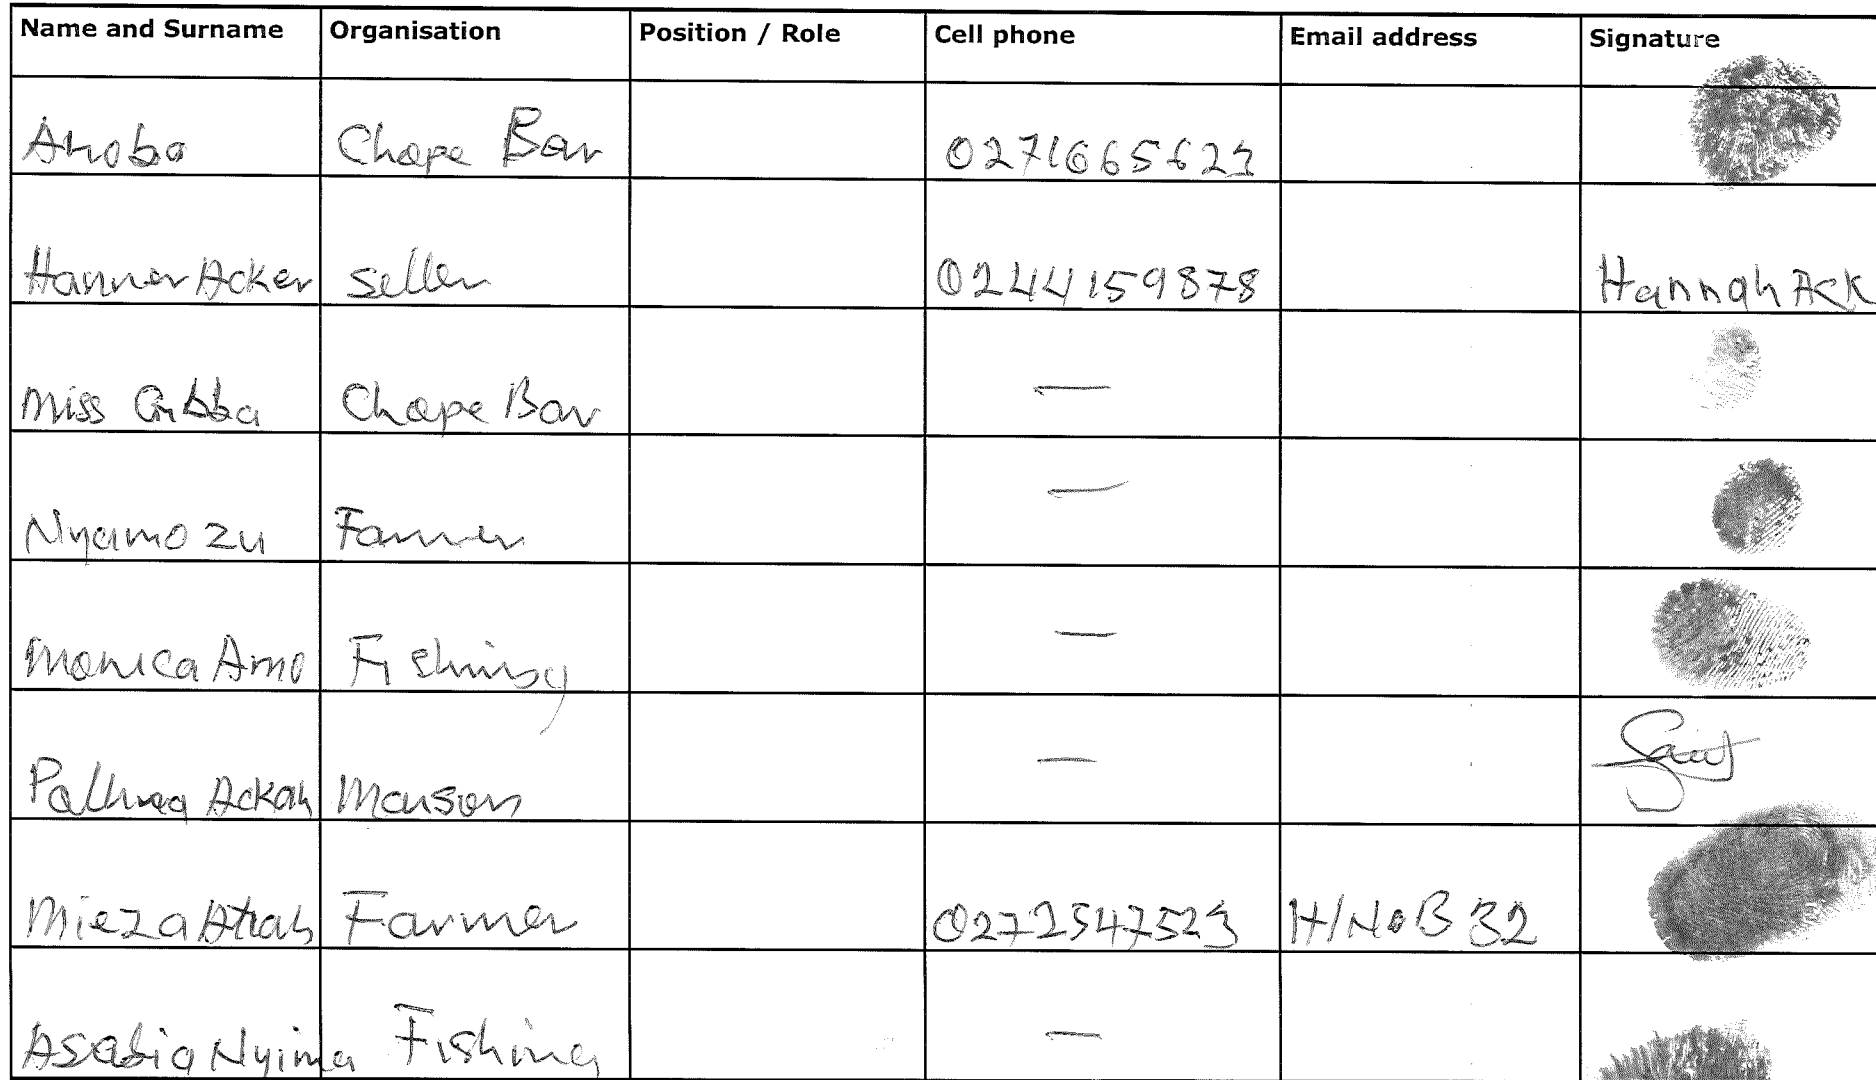 Name and Surname Organisation Position / Role Cell phone Email address Signature
Anoba Chope Bar 0271665623
Hanner Acker seller 0244159878 Hannah Ack
Miss Chope Bar —
Nyamozu Farmer —
Monica Amo Fishing —
Ackah —
Mieza Farmer 0272547523 H/No B 32
Asabia Nyima Fishing —